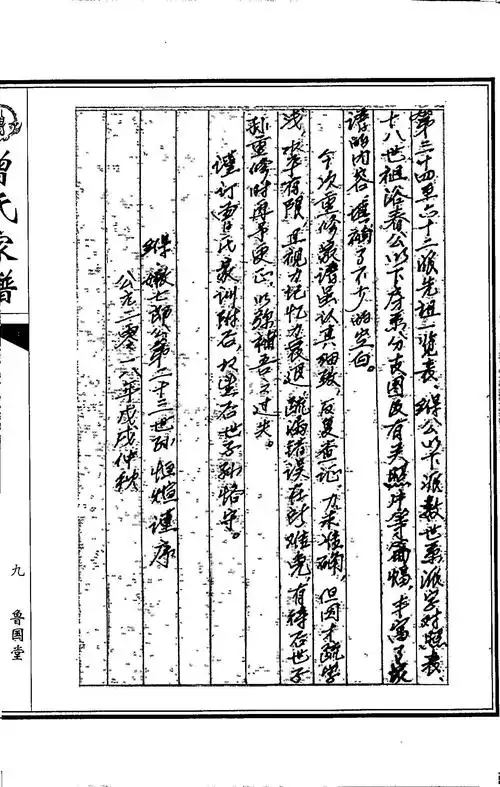 第三十四至六十三派先祖一览表、缉公以下派数世系派字对照表、
十八世祖浴春公以下房系分支图及有关照片等篇幅，丰富了家
谱的内容，填补了不少的空白。
今次重修家谱虽认真细致，反复查证，力求准确，但因才疏学
浅，水平有限，且视力记忆力衰退，疏漏错误在所难免，有待后世子
孙重修时再予更正，以弥补吾之过失。
谨订曾氏家训附后，以望后世子孙恪守。
缉徽七郎公第二十三世孙 恒 谨序
公元二零一八年戊戌仲秋
曾氏家谱
九
鲁国堂